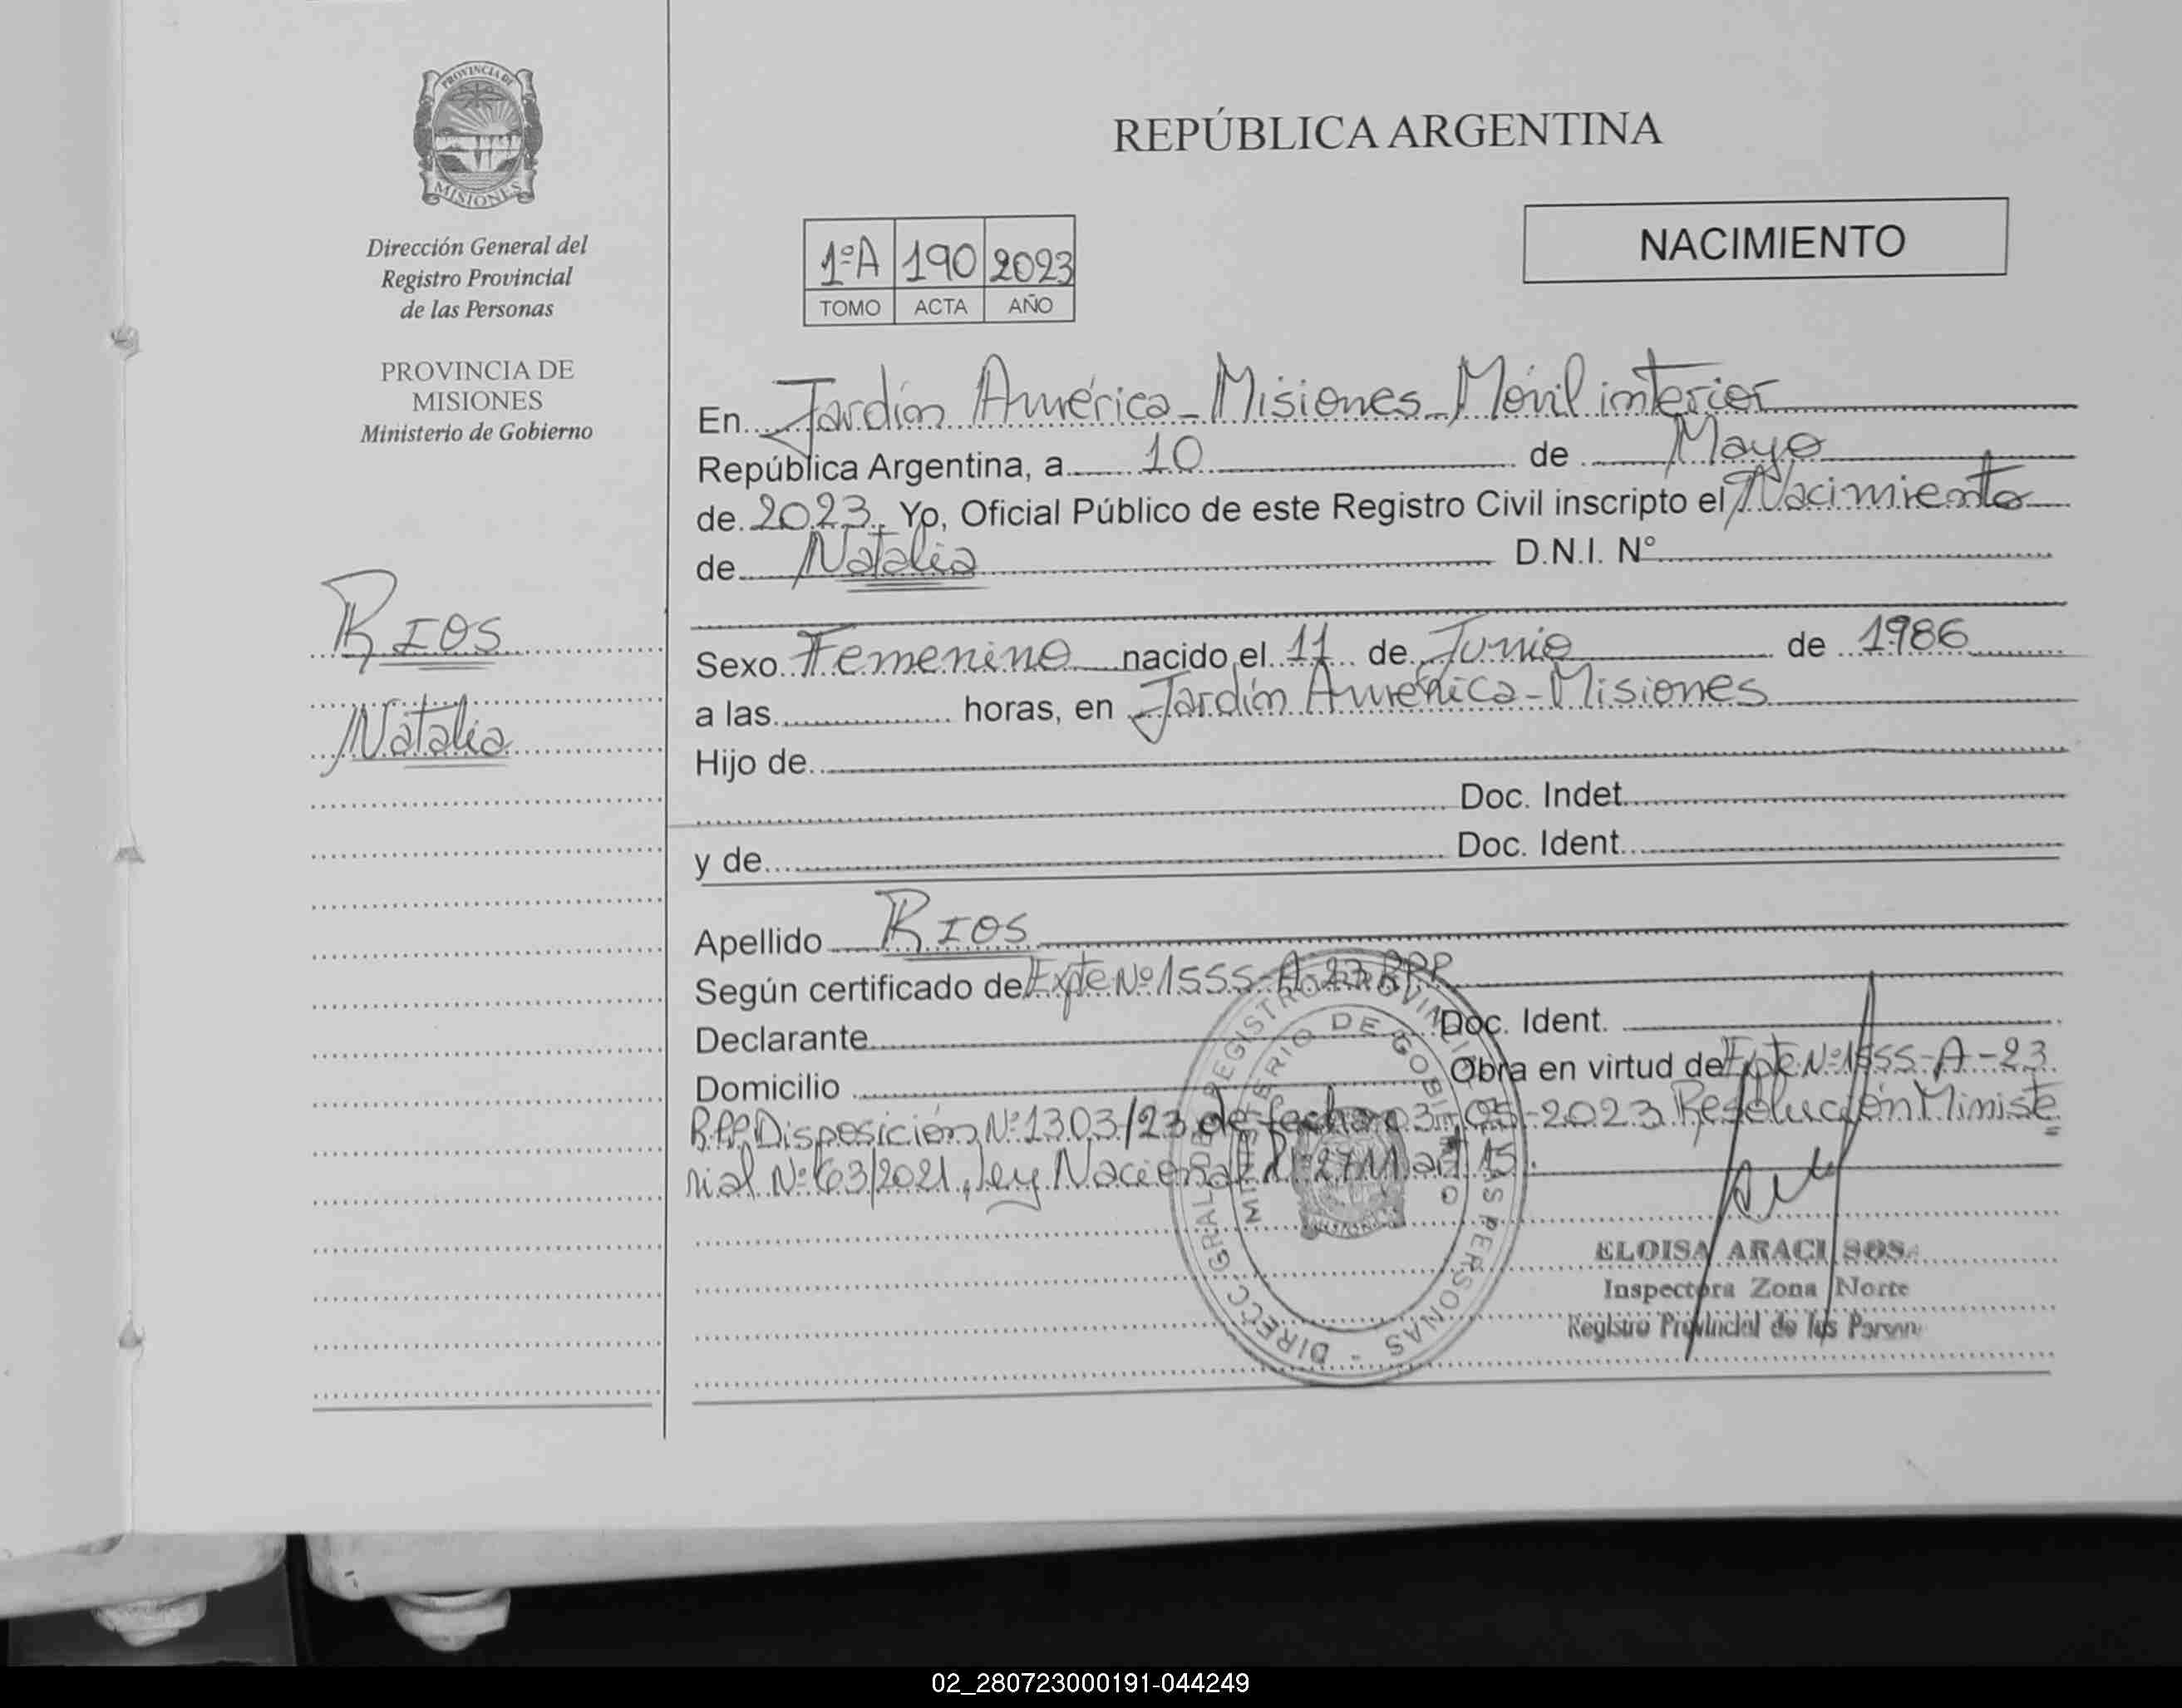 PROVINCIA DE
MISIONES
Dirección General del
Registro Provincial
de las Personas
PROVINCIA DE
MISIONES
Ministerio de Gobierno
Rios
Natalia
REPÚBLICA ARGENTINA
NACIMIENTO
1ºA 190 2023
TOMO ACTA AÑO
En Jardín América - Misiones - Móvil interior
República Argentina, a 10 de Mayo
de 2023. Yo, Oficial Público de este Registro Civil inscripto el Nacimiento
de Natalia D.N.I. Nº
Sexo Femenino nacido el 11 de Junio de 1986
a las horas, en Jardín América - Misiones
Hijo de
Doc. Indet.
y de Doc. Ident.
Apellido Rios
Según certificado de Expte Nº 1555-A-23 RPP
Declarante Doc. Ident.
Domicilio Obra en virtud de Expte Nº 1555-A-23
R.P.P. Disposición Nº 1303/23 de fecha 03-05-2023 Resolución Ministe
rial Nº 63/2021, Ley Nacional art 15.
DIRECC GRAL DE REGISTRO PROVINCIAL PERSONAS -
MINISTERIO DE GOBIERNO
ELOISA ARACI SOSA
Inspectora Zona Norte
Registro Provincial de las Person
02_280723000191-044249